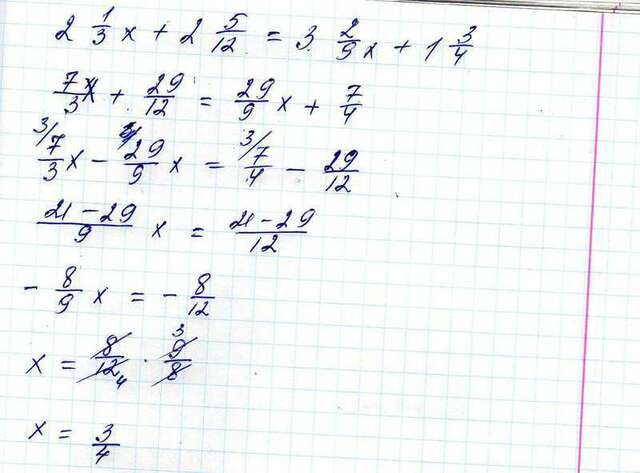 2 1/3 x + 2 5/12 = 3 2/9 x + 1 3/4
7/3 x + 29/12 = 29/9 x + 7/4
3/ 7/3 x - 29/9 x = 3/ 7/4 - 29/12
21-29/9 x = 21-29/12
- 8/9 x = - 8/12
x = 8/12 4 · 3 9/8
x = 3/4